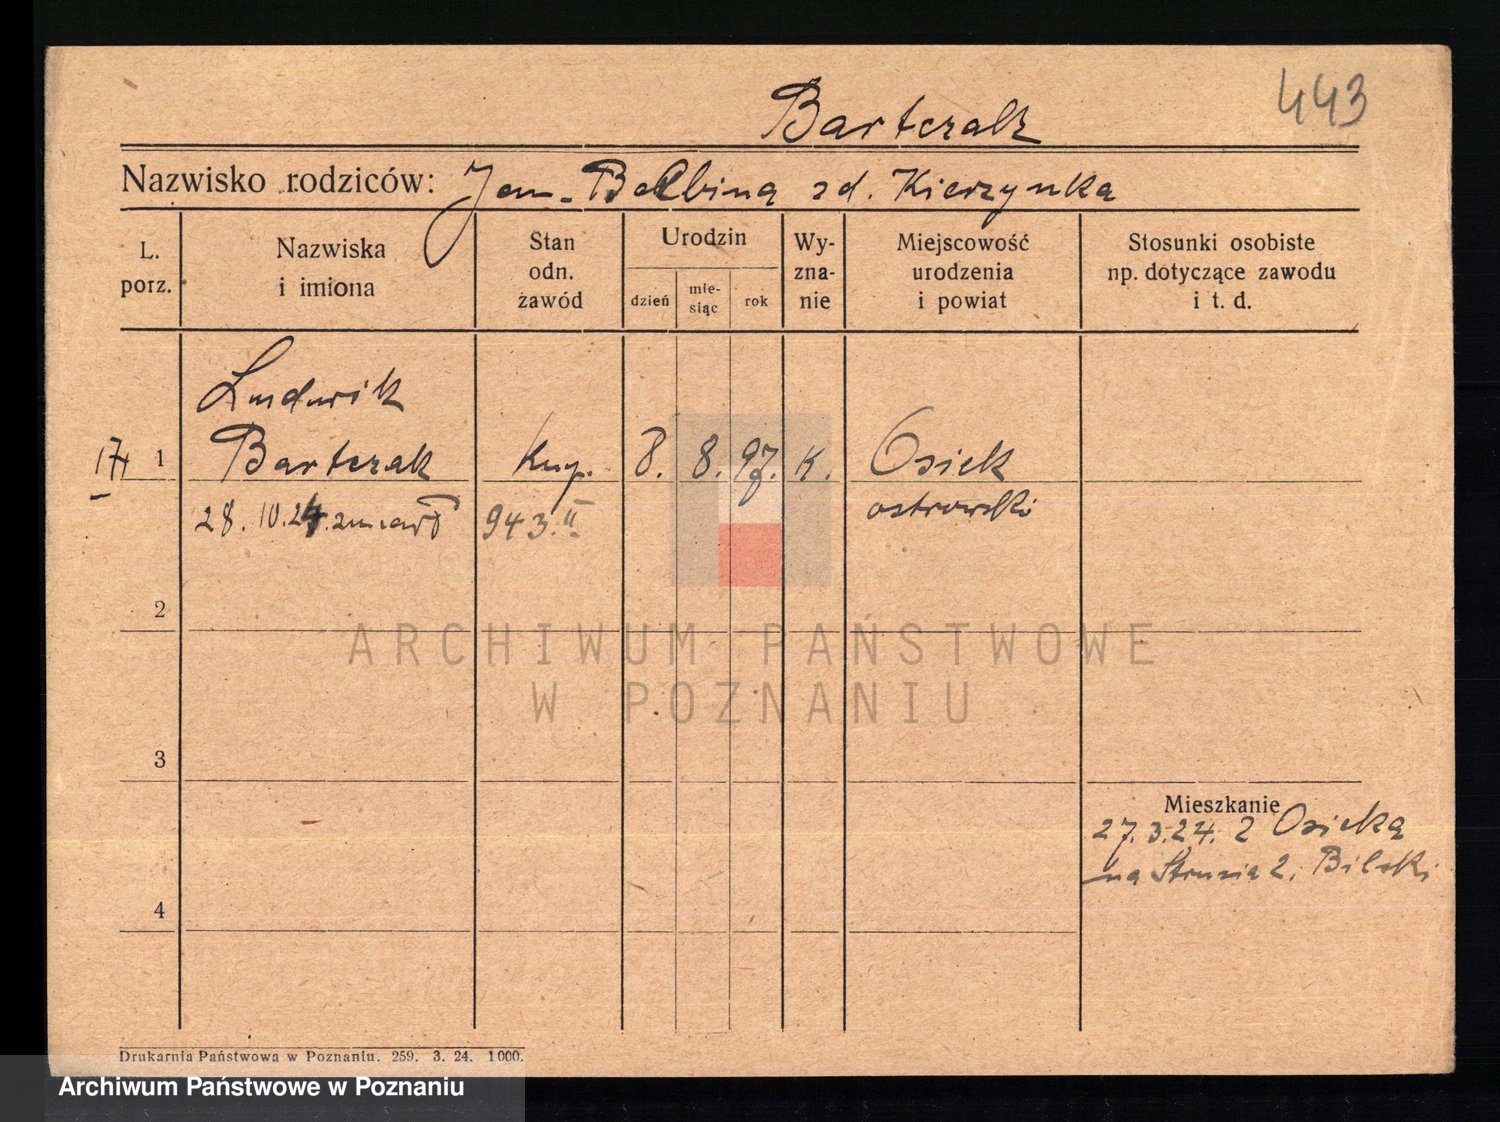 443
Bartczak
Nazwisko rodziców: Jan - Balbina zd. Kierzynka
L. porz.
Nazwiska i imiona
Stan odn. zawód
Urodzin
dzień
mie- siąc
rok
Wy- zna- nie
Miejscowość urodzenia i powiat
Stosunki osobiste np. dotyczące zawodu i t. d.
Ludwik
1 Bartczak Kup. 8. 8. 97. K. Osiek
28. 10. 24. zmarł 943. II ostrowski
2
3
4
Mieszkanie
27. 3. 24. z Osieka
na Strusia 2. Bilski
ARCHIWUM PAŃSTWOWE
W POZNANIU
Drukarnia Państwowa w Poznaniu. 259. 3. 24. 1000.
Archiwum Państwowe w Poznaniu